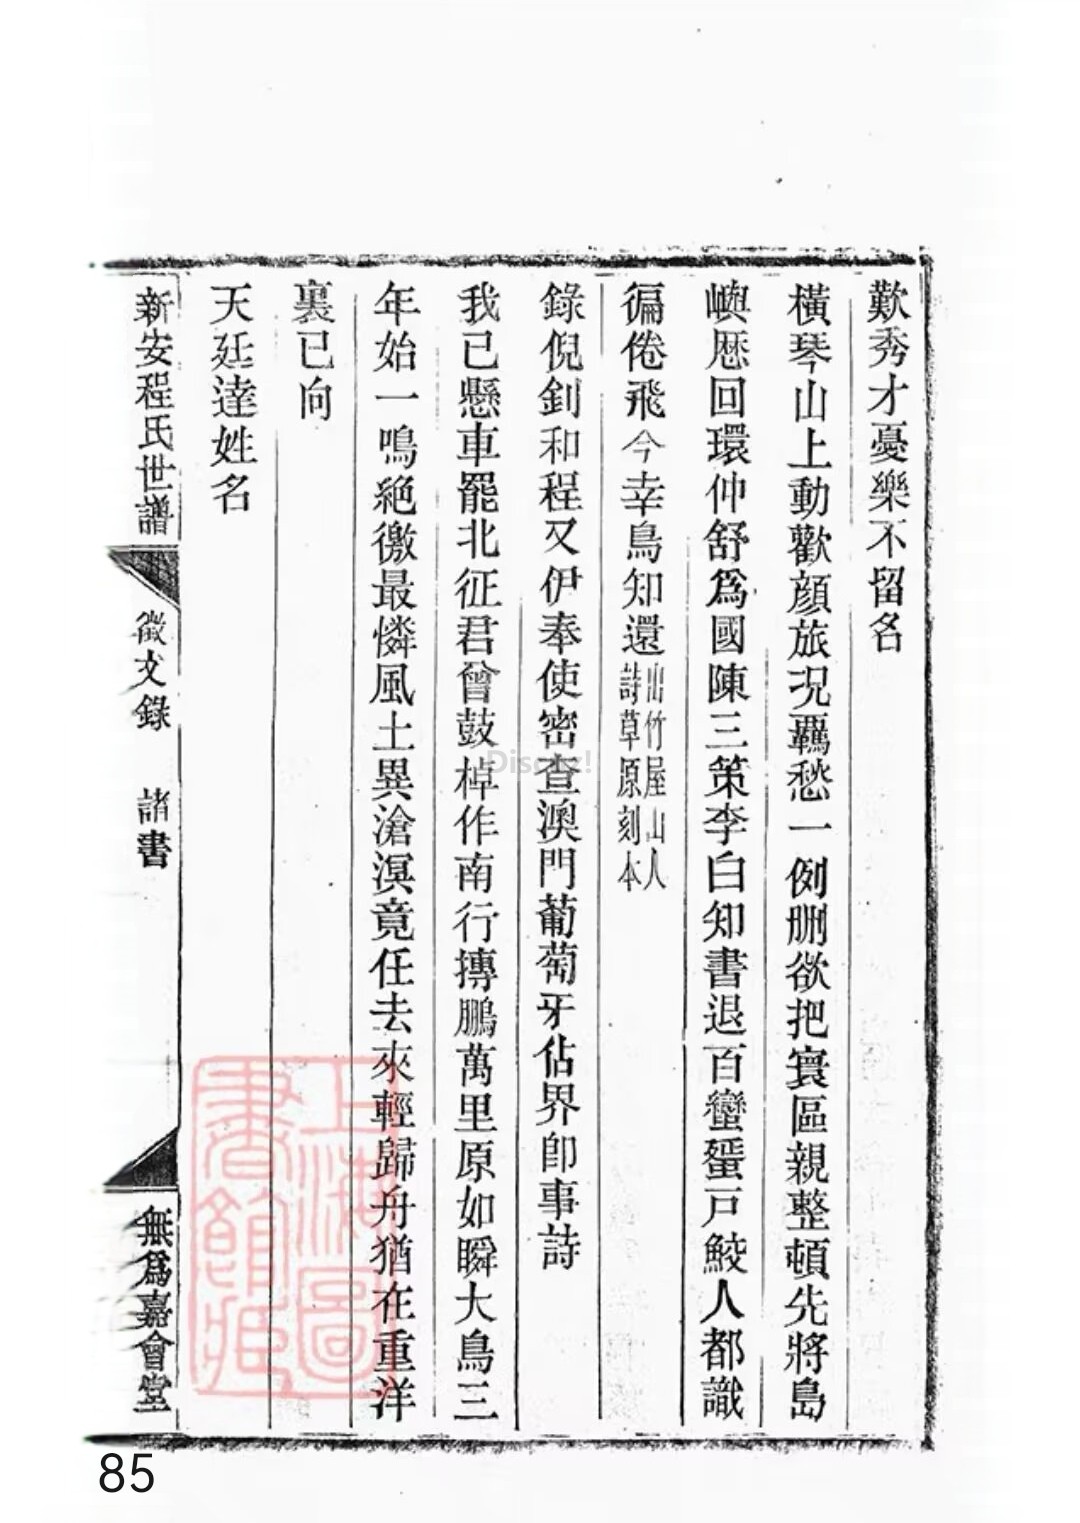 歎秀才憂樂不留名
橫琴山上動歡顏旅況羈愁一例刪欲把寰區親整頓先將島
嶼歷回環仲舒爲國陳三策李白知書退百蠻蜑戶鮫人都識
徧倦飛今幸鳥知還山竹屋山人詩草原刻本
錄倪釗和程又伊奉使密查澳門葡萄牙佔界卽事詩
我已懸車罷北征君曾鼓棹作南行摶鵬萬里原如瞬大鳥三
年始一鳴絕徼最憐風土異滄溟竟任去來輕歸舟猶在重洋
裏已向
天廷達姓名
新安程氏世譜 徵文錄 諸書 無爲嘉會堂
上海圖
書館藏
Discuz!
85